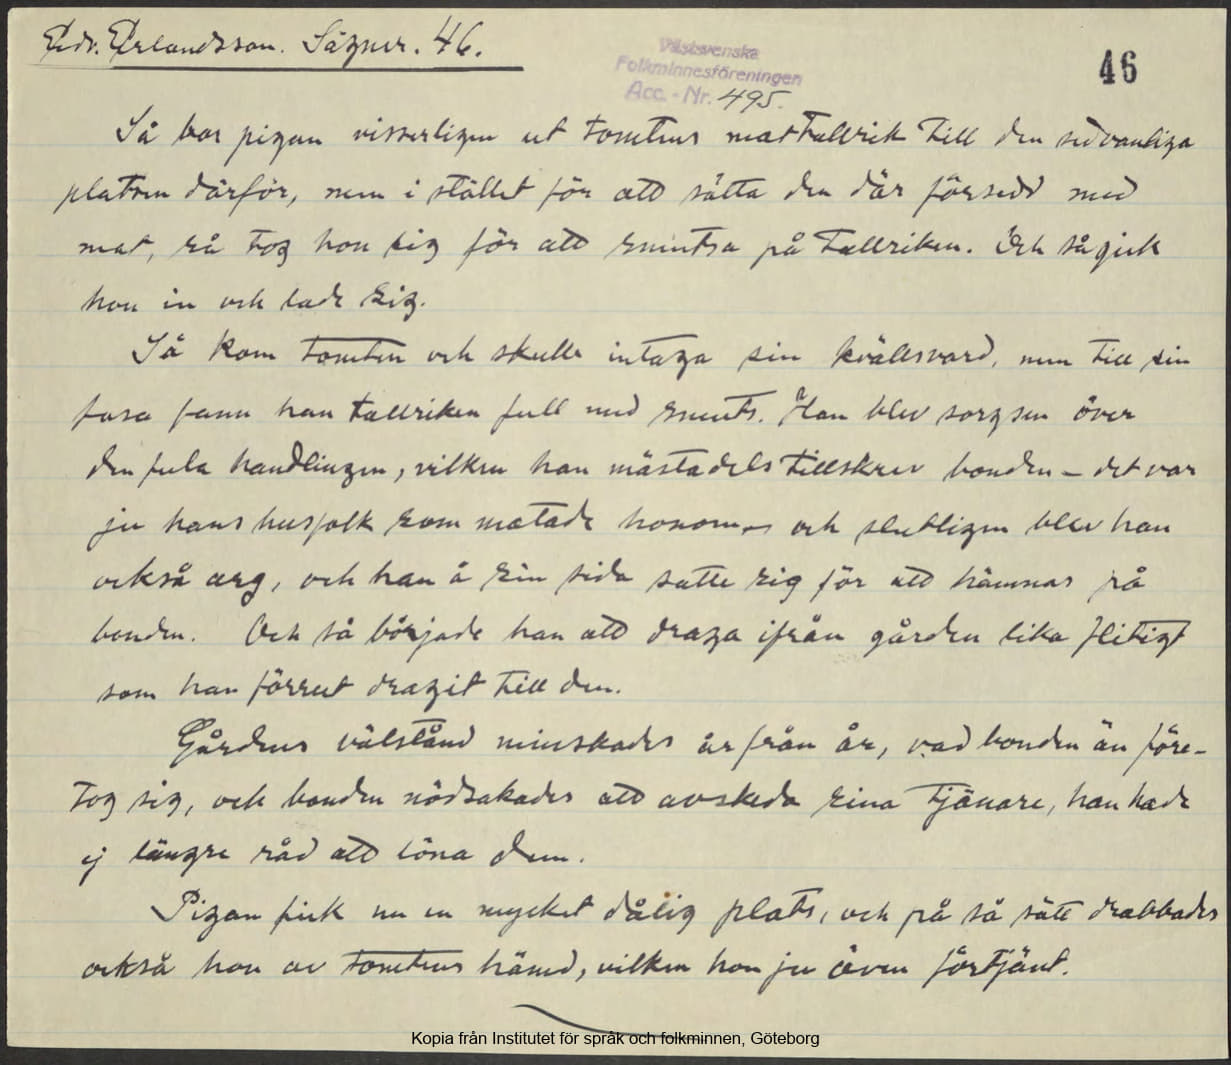 Edv. Erlandsson. Sägner. 46.
Västsvenska
Folkminnesföreningen
Acc. - Nr. 495.
46
Så bar pigan visserligen ut tomtens mattallrik till den sedvanliga
platsen därför, men i stället för att sätta den där försedd med
mat, så tog hon sig för att smutsa på tallriken. Och så gick
hon in och lade sig.
Så kom tomten och skulle intaga sin kvällsvard, men till sin
fasa fann han tallriken full med smuts. Han blev sorgsen över
den fula handlingen, vilken han mästadels tillskrev bonden – det var
ju hans husfolk som matade honom – och slutligen blev han
också arg, och han å sin sida satte sig för att hämnas på
bonden. Och så började han att draga ifrån gården lika flitigt
som han förrut dragit till den.
Gårdens välstånd minskades år från år, vad bonden än före-
tog sig, och bonden nödsakades att avskeda sina tjänare, han hade
ej längre råd att löna dem.
Pigan fick nu en mycket dålig plats, och på så sätt drabbades
också hon av tomtens hämd, vilken hon ju även förtjänt.
Kopia från Institutet för språk och folkminnen, Göteborg